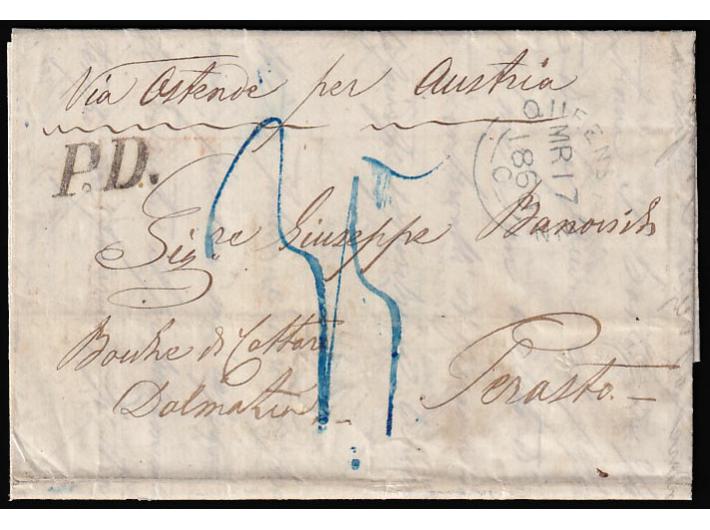 Via Ostende per Austria
P.D.
QUEENS
MR 17
186
C
Sigre Giuseppe Banovich
Bocche di Cattaro
Dalmatia
Perasto.